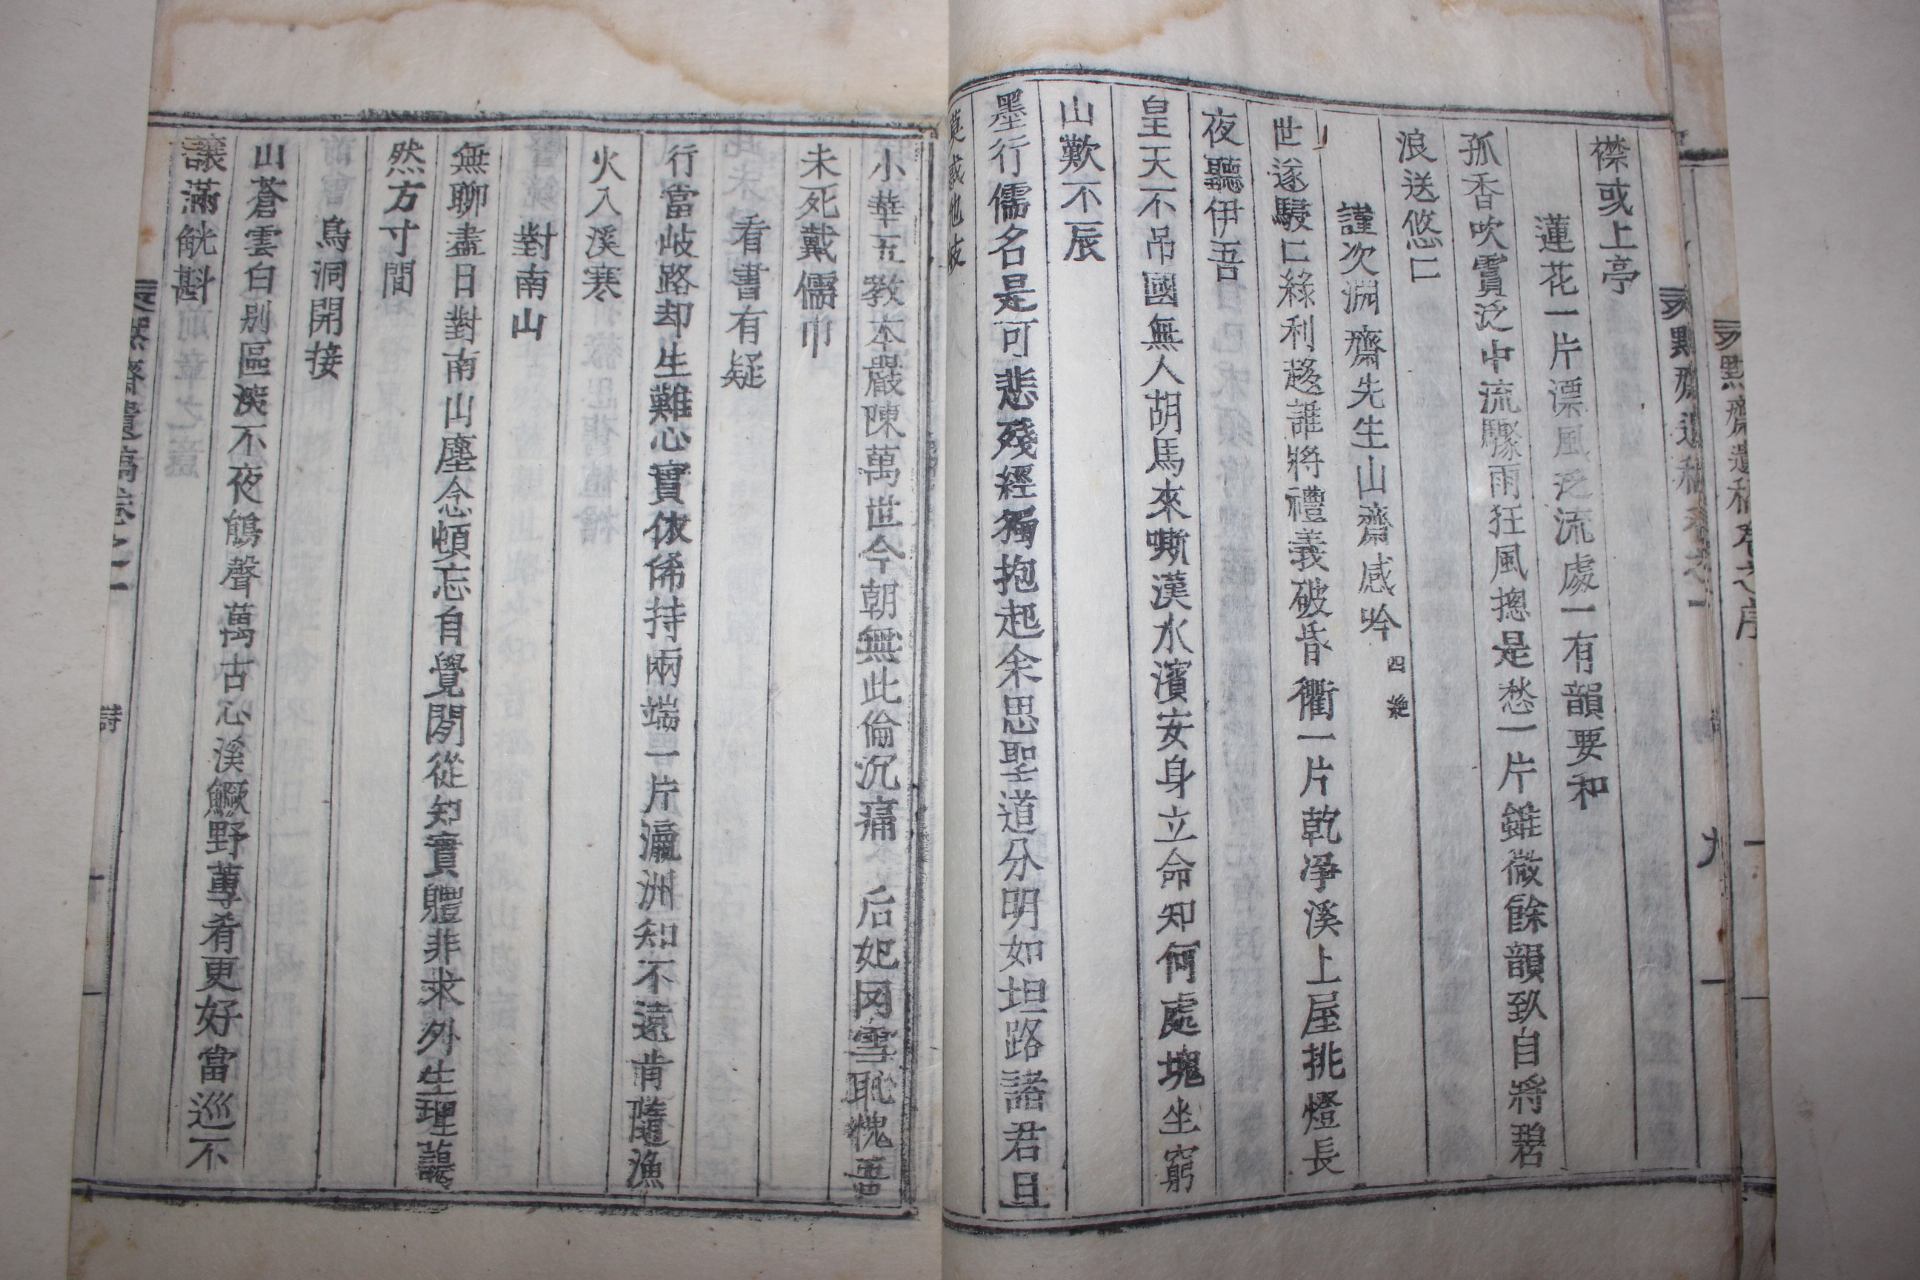 襟或上亭
蓮花一片漂風泛流處一有韻要和
孤香吹霣泛中流驟雨狂風摠是愁一片錐微餘韻致自將碧
浪送悠〻
謹次淵齋先生山齋感吟 四絶
世遂駸〻絲利趍誰將禮義破昏衢一片乾净溪上屋挑燈長
夜聽伊吾
皇天不吊國無人胡馬來嘶漢水濱安身立命知何處塊坐窮
山歎不辰
墨行儒名是可悲殘經獨抱起余思聖道分明如坦路諸君且
莫惑他岐
小華五教本嚴陳萬世今朝無此倫沉痛 后妃㒺雪恥愧吾
未死戴儒巾
看書有疑
行當歧路却生難心實依俙持兩端一片瀛洲知不遠肯隨漁
火入溪寒
對南山
無聊盡日對南山塵念頓忘自覺閒從知實體非求外生理
然方寸間
烏洞開接
山蒼雲白别區淡不夜鶴聲萬古心溪鱖野蓴肴更好當巡不
讓滿觥斟
默齋遺稿卷之一
詩
九
默齋遺稿卷之一
詩
十
默齋遺稿卷之序
一